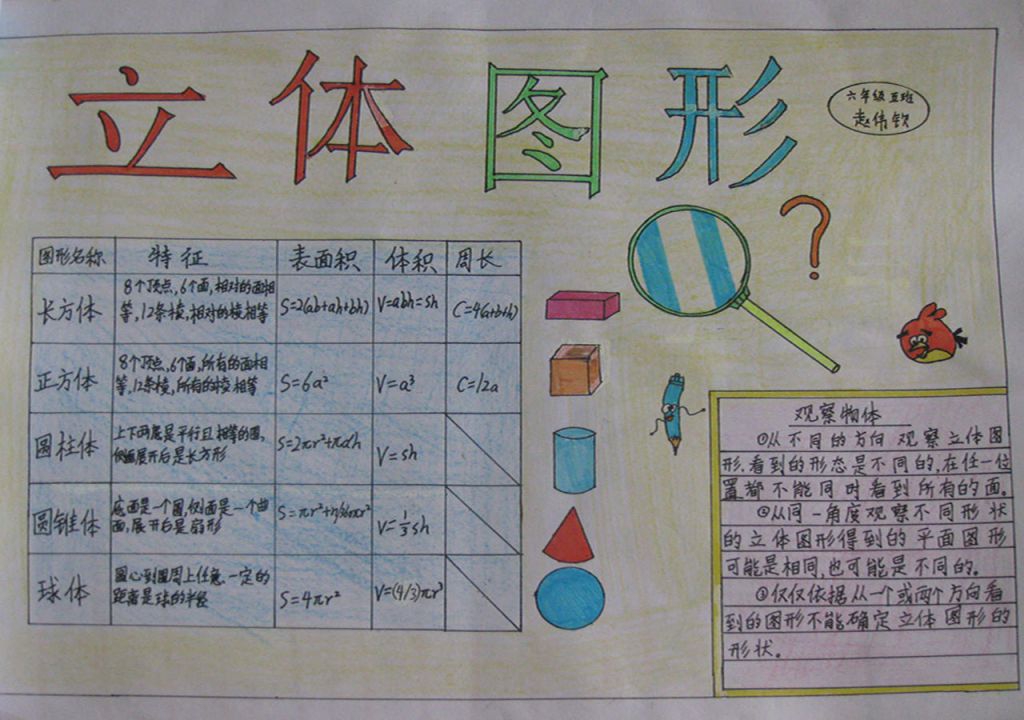 立体图形
六年级五班
赵伟钦
图形名称 特征 表面积 体积 周长
长方体
8个顶点,6个面,相对的面相
等,12条棱,相对的棱相等
S=2(ab+ah+bh)
V=abh=sh
C=4(a+b+h)
正方体
8个顶点,6个面,所有的面相
等,12条棱,所有的棱相等
S=6a²
V=a³
C=12a
圆柱体
上下两底是平行且相等的圆,
侧面展开后是长方形
S=2πr²+πdh
V=sh
圆锥体
底面是一个圆,侧面是一个曲
面,展开后是扇形
V=⅓sh
球体
圆心到圆周上任意一定的
距离是球的半径
S=4πr²
V=(4/3)πr³
观察物体
①从不同的方向观察立体图
形,看到的形态是不同的,在任一位
置都不能同时看到所有的面。
②从同一角度观察不同形状
的立体图形得到的平面图形
可能是相同,也可能是不同的。
③仅仅依据从一个或两个方向看
到的图形不能确定立体图形的
形状。